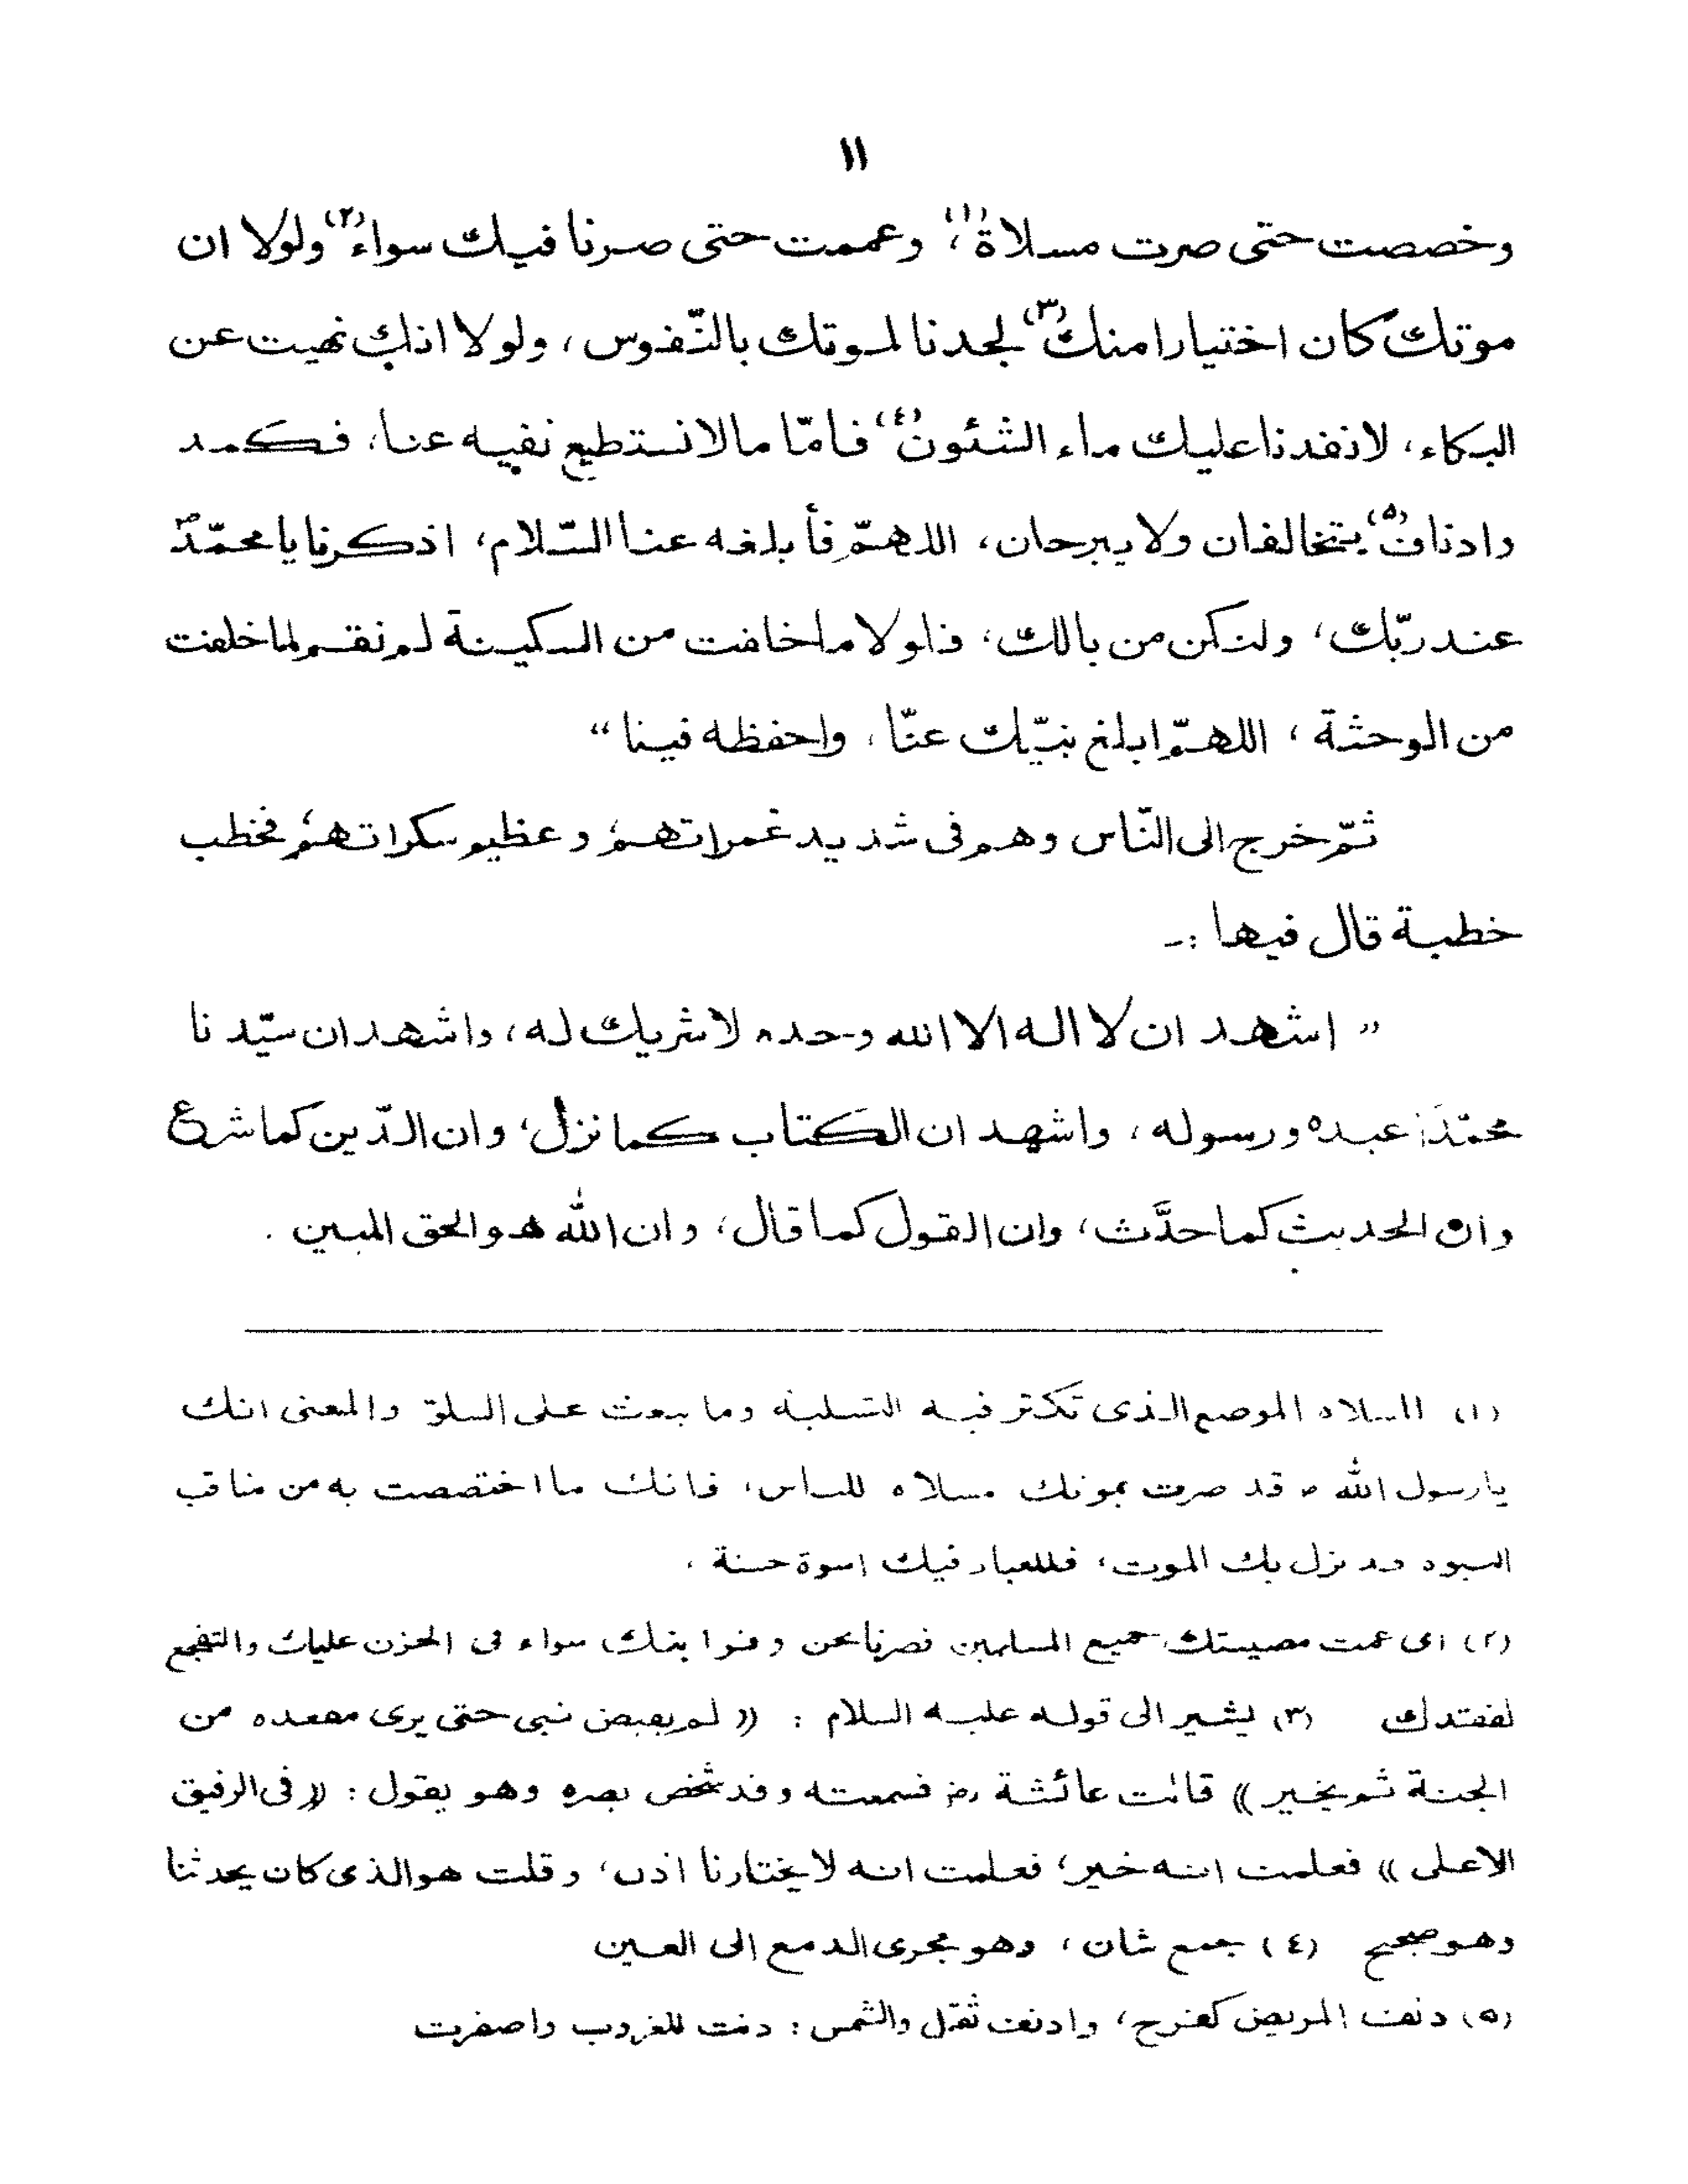 ١١
وخصصت حتى صرت مسلاة(١)، وعممت حتى صرنا فيك سواء(٢) ولولا ان
موتك كان اختيارا منك(٣) لجدنا لموتك بالنّفوس، ولولا انك نهيت عن
البكاء، لانفدنا عليك ماء الشئون(٤) فامّا مالا نستطيع نفيه عنا، فكمد
وادناف(٥) يتخالفان ولا يبرحان، اللهمّ فأبلغه عنا السّلام، اذكرنا يا محمّدؐ
عند ربّك، ولنكن من بالك، فلولا ما خلفت من السكينة لم نقم لما خلفت
من الوحشة، اللهمّ ابلغ نبيّك عنّا، واحفظه فينا“
ثمّ خرج الى النّاس وهم فى شديد غمراتهم؛ وعظيم سكراتهم؛ فخطب
خطبة قال فيها :-
” اشهد ان لا اله الا الله وحده لا شريك له، واشهد ان سيّدنا
محمّدا عبده ورسوله، واشهد ان الكتاب كما نزل، وان الدّين كما شرع
وان الحديث كما حدَّث، وان القول كما قال، وان الله هو الحق المبين .
(١) المسلاه الموضع الذى تكثر فيه التسلية وما يبعث على السلو والمعنى انك
يا رسول الله ص قد صرت بموتك مسلاه للناس، فانك ما اختصصت به من مناقب
النبوه قد نزل بك الموت، فللعباد فيك اسوة حسنة .
(٢) اى عمت مصيبتك جميع المسلمين فصرنا نحن و قرابتك سواء فى الحزن عليك والتفجع
لفقدك (٣) يشير الى قوله عليه السلام : (( لم يقبض نبى حتى يرى مقعده من
الجنة ثم يخير )) قالت عائشة رض فسمعته وقد شخص بصره وهو يقول : (( فى الرفيق
الاعلى )) فعلمت انه خير؛ فعلمت انه لا يختارنا اذن، وقلت هو الذى كان يحدثنا
وهو صحيح (٤) جمع شان، وهو مجرى الدمع الى العين
(٥) دنف المريض كفرح، وادنف ثقل والشمس : دنت للغروب واصفرت